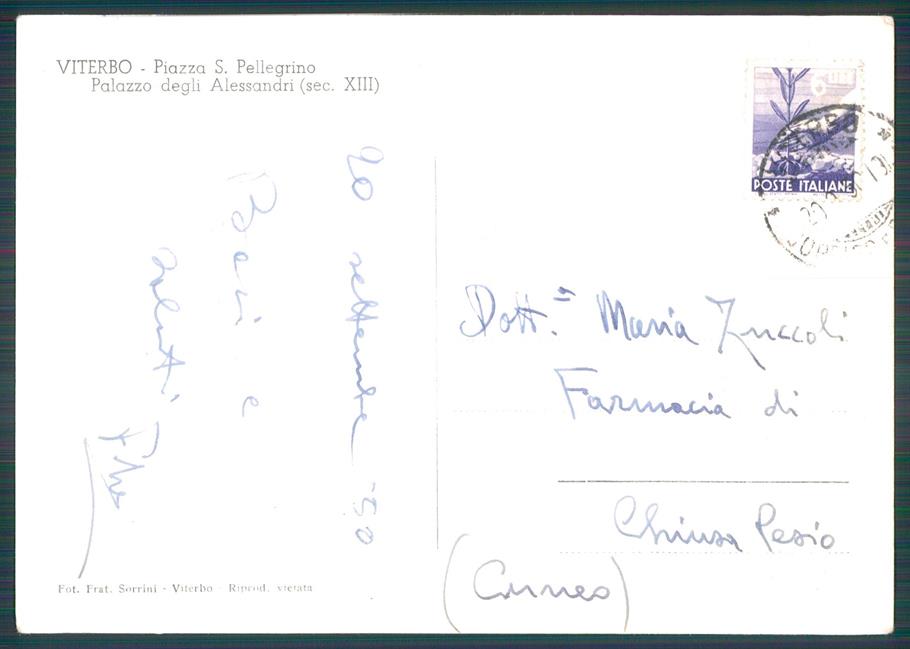 VITERBO - Piazza S. Pellegrino
Palazzo degli Alessandri (sec. XIII)
POSTE ITALIANE
20 settembre '50
Baci e
saluti
Dott.ª Maria Zuccoli
Farmacia di
Chiusa Pesio
(Cuneo)
Fot. Frat. Sorrini - Viterbo - Riprod. vietata